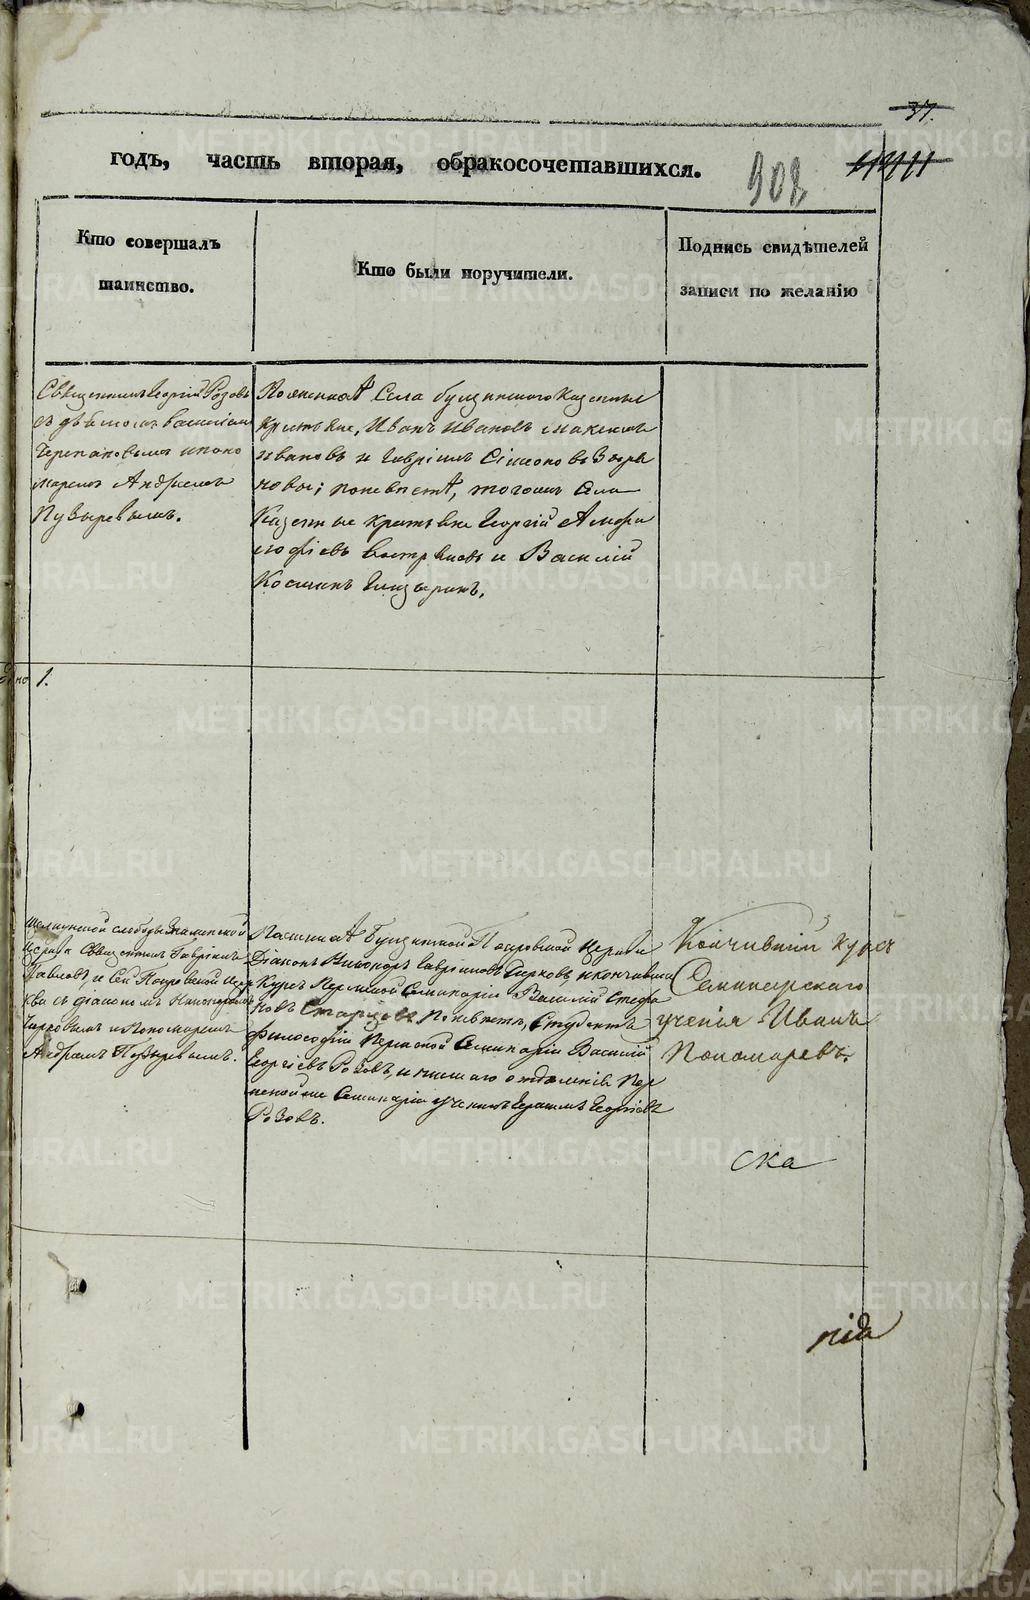 37.
годъ, часть вторая, обракосочетавшихся.
908
Кто совершалъ
таинство.
Кто были поручители.
Подпись свидѣтелей
записи по желанію
Священникъ Георгій Розовъ
съ дьячкомъ Василіемъ
Черепановымъ и поно
маремъ Андреемъ
Пузыревымъ.
Села Бущинскаго Казенные
Крестьяне, Иванъ Ивановъ Максимъ
Ивановъ и Гавріилъ Сімеоновъ
по невѣстѣ, тогожъ Села
Казенные крестьяне Георгій
и Василій
Косминъ
1.
слободы Знаменской
Церкви Священникъ Гавріилъ
Павловъ, и Покровской Цер
кви съ діакономъ Никаноромъ
и Пономаремъ
Андреемъ Пузыревымъ.
Бущинской Покровской Церкви
Діаконъ Никаноръ Гавріиловъ и кончившій
Курсъ Пермской Семинаріи Василій Стефа
новъ Старцевъ. По невѣстѣ, Студентъ
философіи Пермской Семинаріи Василій
Георгіевъ Розовъ, и низшаго отдѣленія Пер
мской же Семинаріи ученикъ Георгіевъ
Розовъ.
Кончившій курсъ
Семинарскаго
ученія Иванъ
Пономаревъ.
ска
METRIKI.GASO-URAL.RU